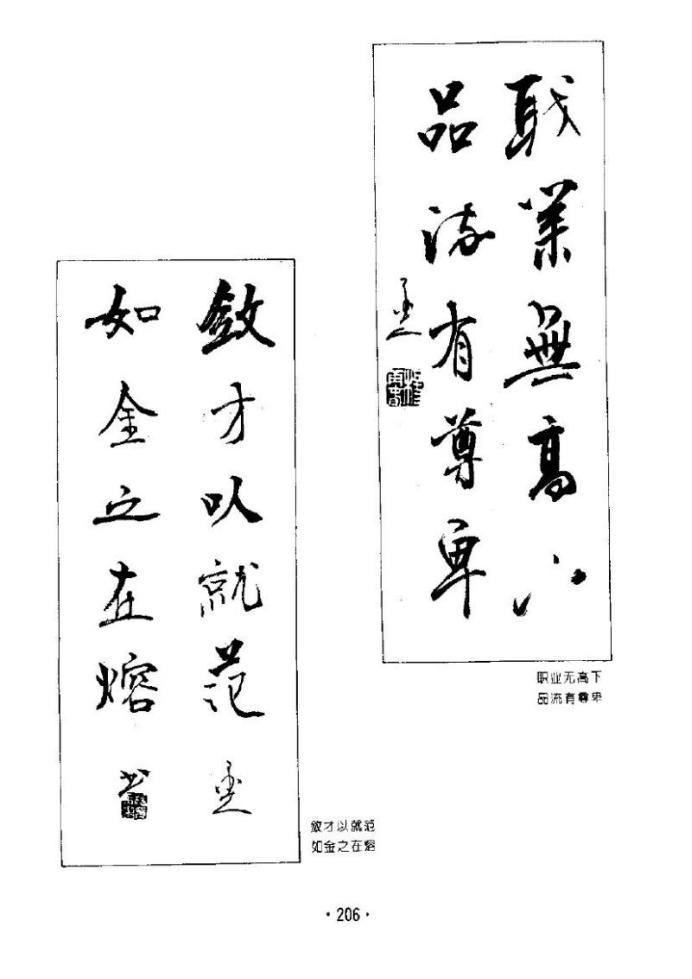 職業無高下
品流有尊卑
职业无高下
品流有尊卑
斂才以就范
如金之在熔
书
敛才以就范
如金之在熔
·206·